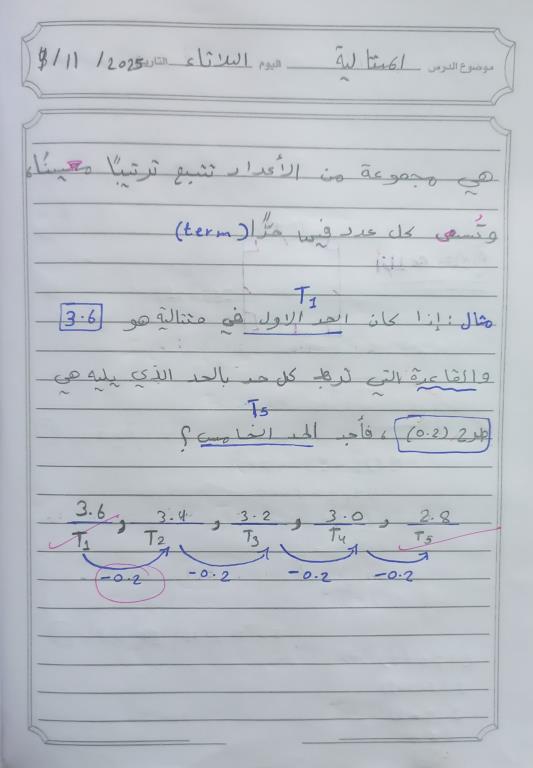 موضوع الدرس المتتالية اليوم الثلاثاء التاريخ 2025 / 11 /
هي مجموعة من الأعداد تتبع ترتيبًا معينًا،
وتُسمى كل عدد فيها حدًّا (term)
T1
مثال: إذا كان الحد الاول في متتالية هو 3.6
والقاعدة التي تربط كل حد بالحد الذي يليه هي
T5
طرح (0.2)، فأجد الحد الخامس؟
3.6 , 3.4 , 3.2 , 3.0 , 2.8
T1 T2 T3 T4 T5
-0.2 -0.2 -0.2 -0.2